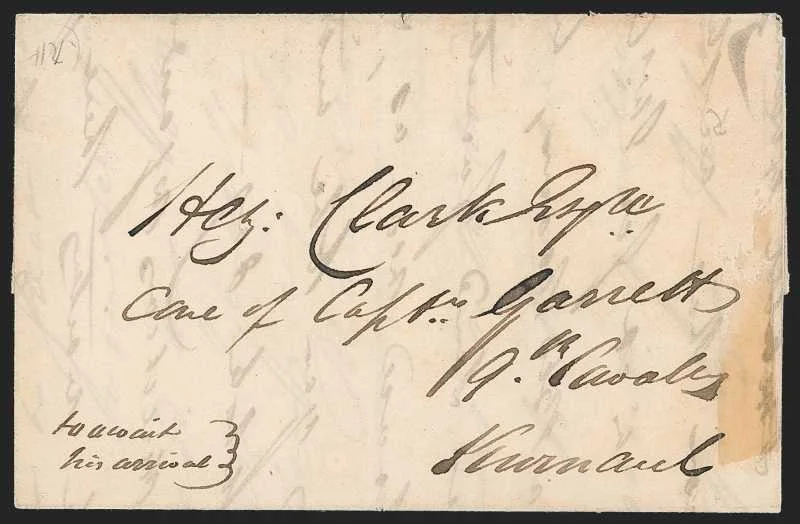 Hey: Clark Esqre
Care of Captn Garrett
9th Cavalry
Kurnaul
to await
his arrival